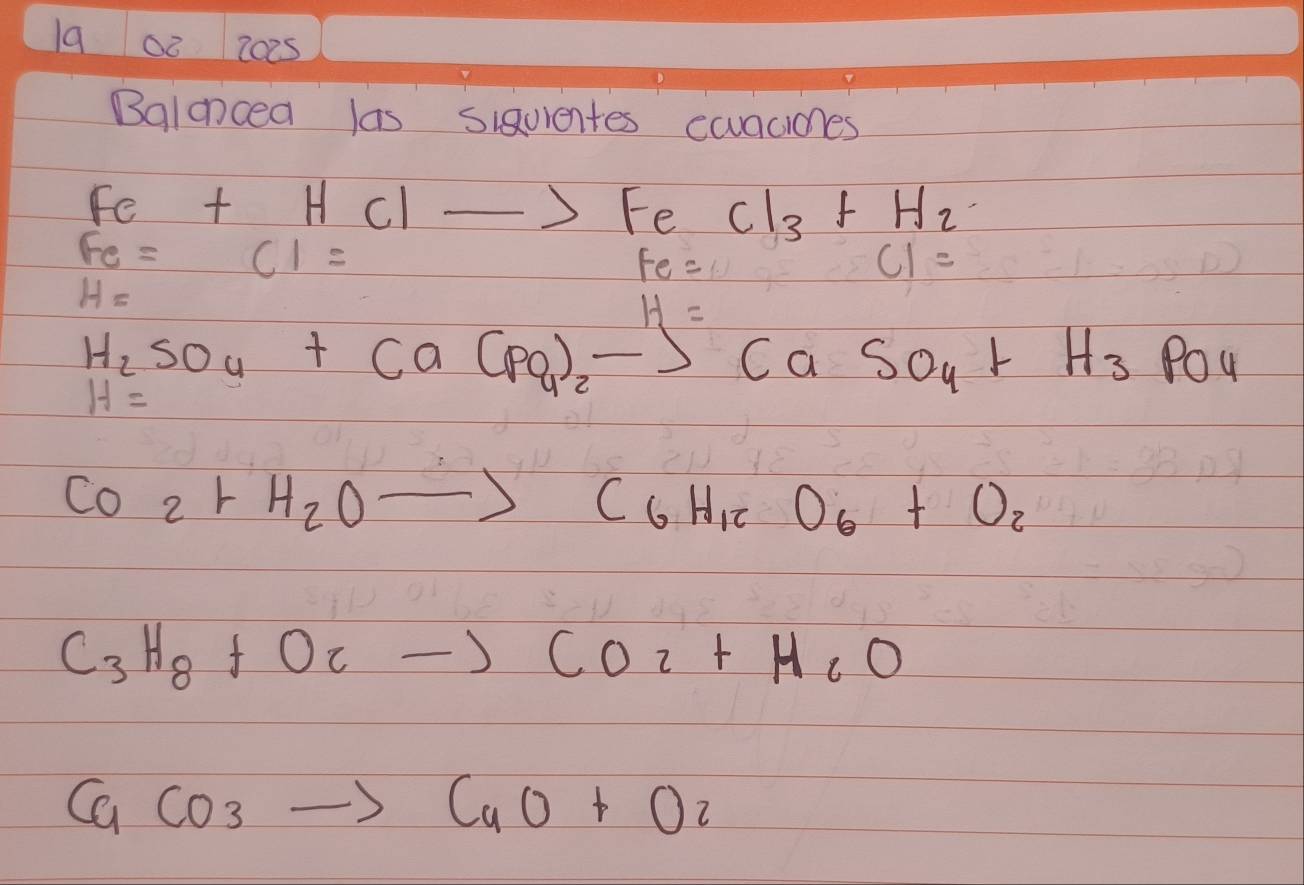 19 02 2025
Balancea las siguientes ecuaciones
Fe + H Cl —> Fe Cl3 + H2
Fe = Cl = Fe = Cl =
H = H =
H2SO4 + Ca (PO4)2 —> Ca SO4 + H3 PO4
H =
CO2 + H2O —> C6H12O6 + O2
C3H8 + O2 —> CO2 + H2O
Ca CO3 —> CaO + O2